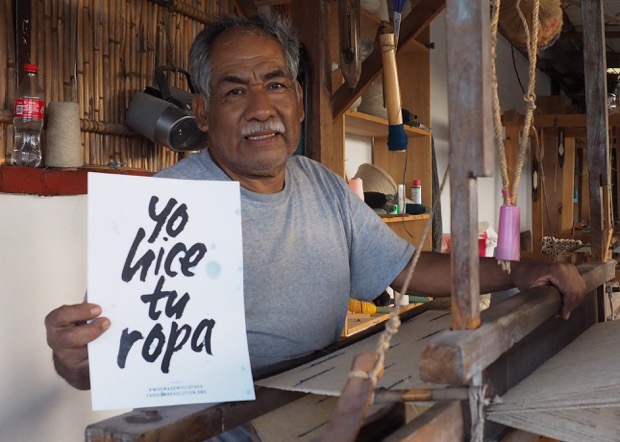 yo
hice
tu
ropa
#WHOMADEMYCLOTHES
FASHIONREVOLUTION.ORG